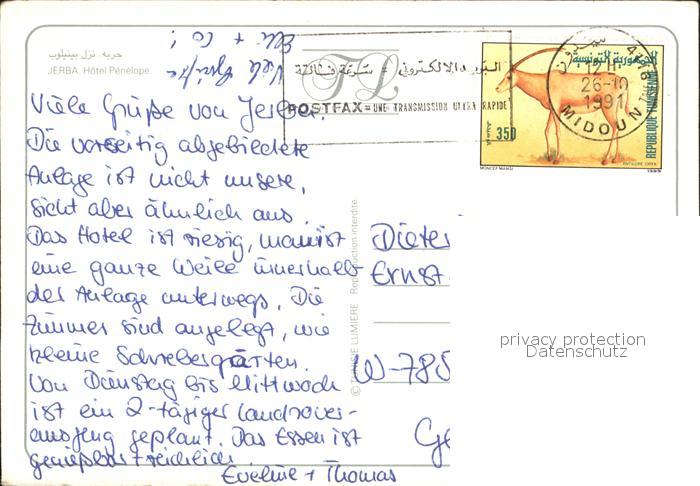 جربه - نزل بينيلوب
JERBA. Hôtel Pénélope.
Viele Grüße
Elli + Co!
Viele Grüße von Jerba.
Die vorseitig abgebildete
Anlage ist nicht unsere,
sieht aber ähnlich aus.
Das Hotel ist riesig, man ist
eine ganze Weile innerhalb
der Anlage unterwegs. Die
Zimmer sind angelegt, wie
kleine Schrebergärten.
Von Dienstag bis Mittwoch
ist ein 2-tägiger Landrover-
ausflug geplant. Das Essen ist
genießbar + reichlich.
Eveline + Thomas
البريد الالكتروني = سرعة فائقة
POSTFAX = UNE TRANSMISSION ULTRA RAPIDE
26-10
1991
MIDOUN
الجمهورية التونسية
REPUBLIQUE TUNISIENNE
350
ANTILOPE ORYX
1989
© TUNISIE LUMIERE Reproduction interdite
Dieter
Ernst-
W-785
Ge
privacy protection
Datenschutz